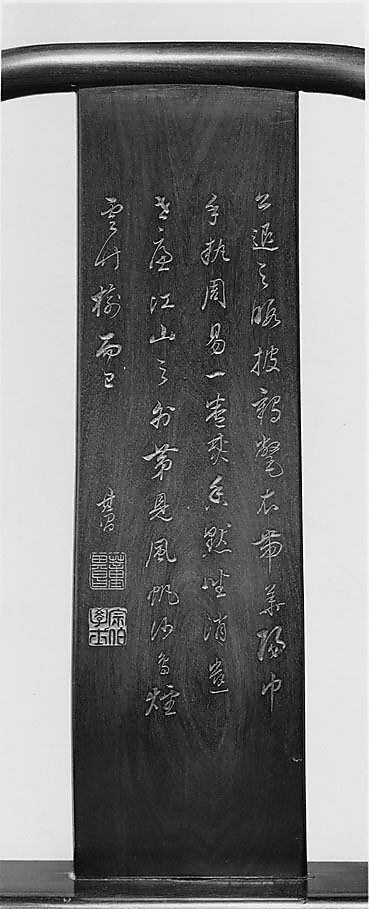 公退之暇披鶴氅衣帶華陽巾
手執周易一卷焚香默坐消遣
世慮江山之外第見風帆沙鳥煙
雲竹樹而已
其昌
宗伯學士